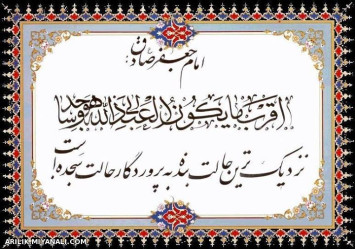 امام جعفر صادق:
اقرب ما یکون العبد الی الله و هو ساجد
نزدیک ترین حالت بنده به پروردگار حالت سجده است
ARILIK-MIYANALI.COM